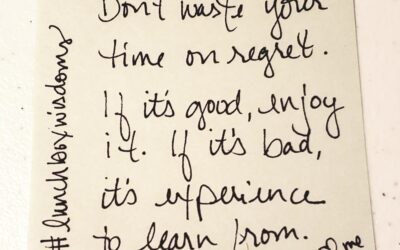 Don't waste your
time on regret.
If it's good, enjoy
it. If it's bad,
it's experience
to learn from.
#lunchboxwisdoms